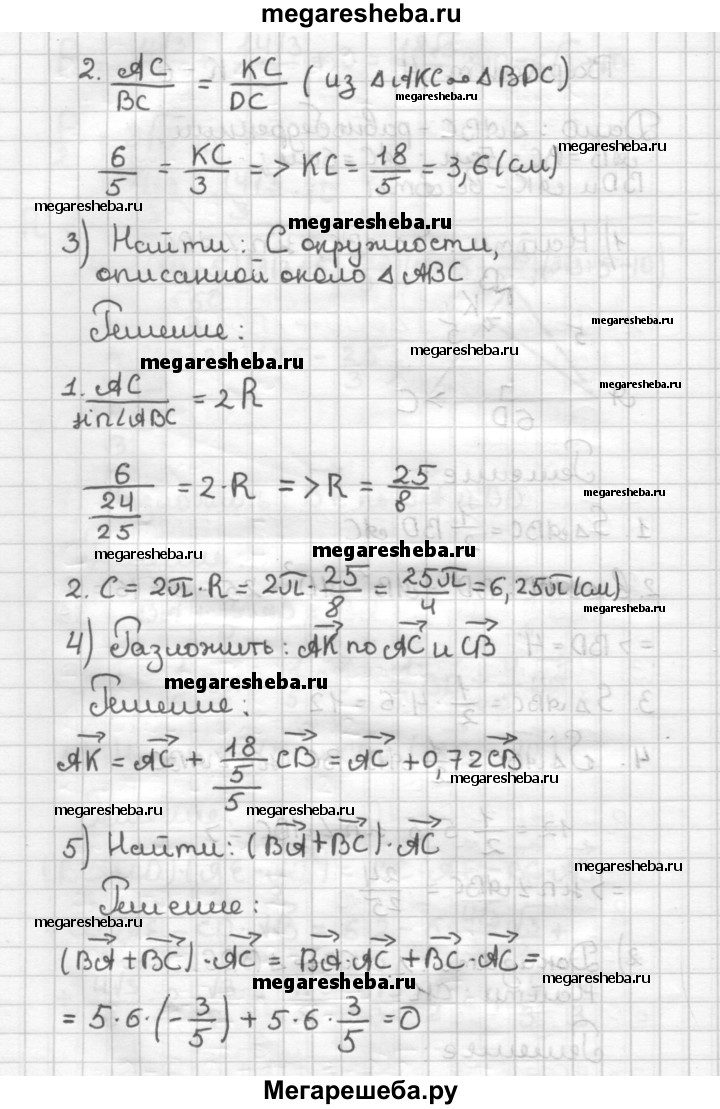 megaresheba.ru
2. AC/BC = KC/DC (из △AKC ∾ △BDC)
megaresheba.ru
megaresheba.ru
6/5 = KC/3 => KC = 18/5 = 3,6 (см)
megaresheba.ru
megaresheba.ru
3) Найти: C окружности,
описанной около △ABC
Решение:
megaresheba.ru
megaresheba.ru
megaresheba.ru
megaresheba.ru
1. AC/sin∠ABC = 2R
6/(24/25) = 2·R => R = 25/8
megaresheba.ru
megaresheba.ru
megaresheba.ru
2. C = 2π·R = 2π·25/8 = 25π/4 = 6,25π (см)
megaresheba.ru
4) Разложить: AK⃗ по AC⃗ и CB⃗
megaresheba.ru
Решение:
AK⃗ = AC⃗ + (18/5)/5 CB⃗ = AC⃗ + 0,72CB⃗
megaresheba.ru
megaresheba.ru
megaresheba.ru
5) Найти: (BA⃗ + BC⃗)·AC⃗
megaresheba.ru
Решение:
megaresheba.ru
(BA⃗ + BC⃗)·AC⃗ = BA⃗·AC⃗ + BC⃗·AC⃗ =
megaresheba.ru
megaresheba.ru
= 5·6·(-3/5) + 5·6·3/5 = 0
Мегарешеба.ру